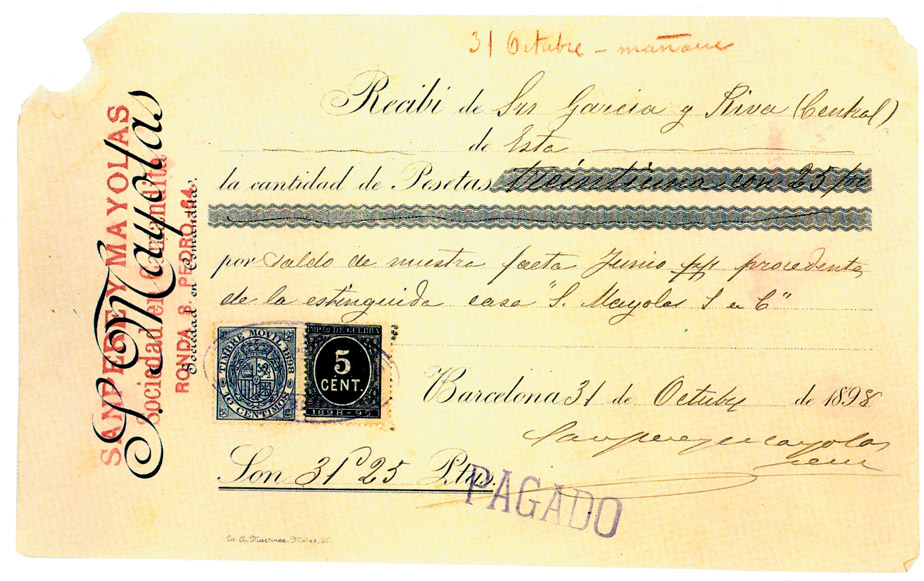 31 Octubre - mañana
Recibí de Srs García y Riva (Central)
de Esta
la cantidad de Pesetas treintiuna con 25
por saldo de nuestra facta Junio ppº procedente
de la estinguida casa "S. Mayolas S en C"
Barcelona 31 de Octubre de 1898
Sampere y Mayolas
Son 31P 25 Ptas.
PAGADO
SAMPERE Y MAYOLAS
Sociedad en Comandita
RONDA S. PEDRO 64
S. Mayolas
Sociedad en Comandita.
TIMBRE MOVIL 1898
10 CENTIMOS
IMPTO DE GUERRA
5
CENT.
1898-99
A. Martinez